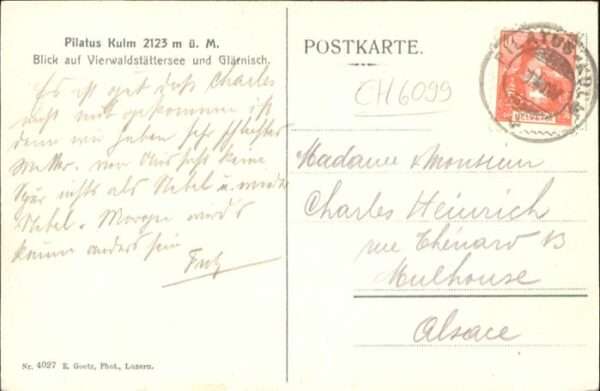 Pilatus Kulm 2123 m ü. M.
Blick auf Vierwaldstättersee und Glärnisch.
Es ist gut daß Charles
nicht mit gekommen ist
denn wir haben sehr schlechtes
Wetter. von keine
Spur nichts als Nebel u. wieder
Nebel. Morgen wird's
kaum anders sein
Fritz
Nr. 4027 E. Goetz, Phot., Luzern.
POSTKARTE.
CH6099
PILATUS-KULM
HELVETIA
Madame & Monsieur
Charles Heinrich
rue Thénard 13
Mulhouse
Alsace